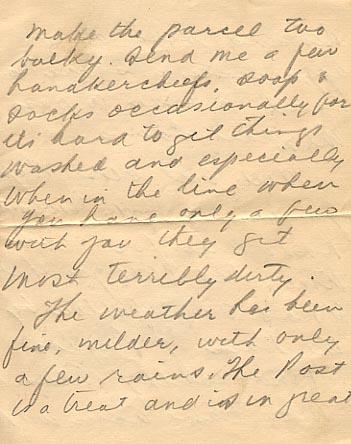 make the parcel two
bulky. Send me a few
handkercheefs, soap &
socks occasionally for
its hard to get things
washed and especially
when in the line when
you have only a few
with you they get
most terribly dirty.
The weather has been
fine, milder, with only
a few rains. The Post
is a treat and is in great